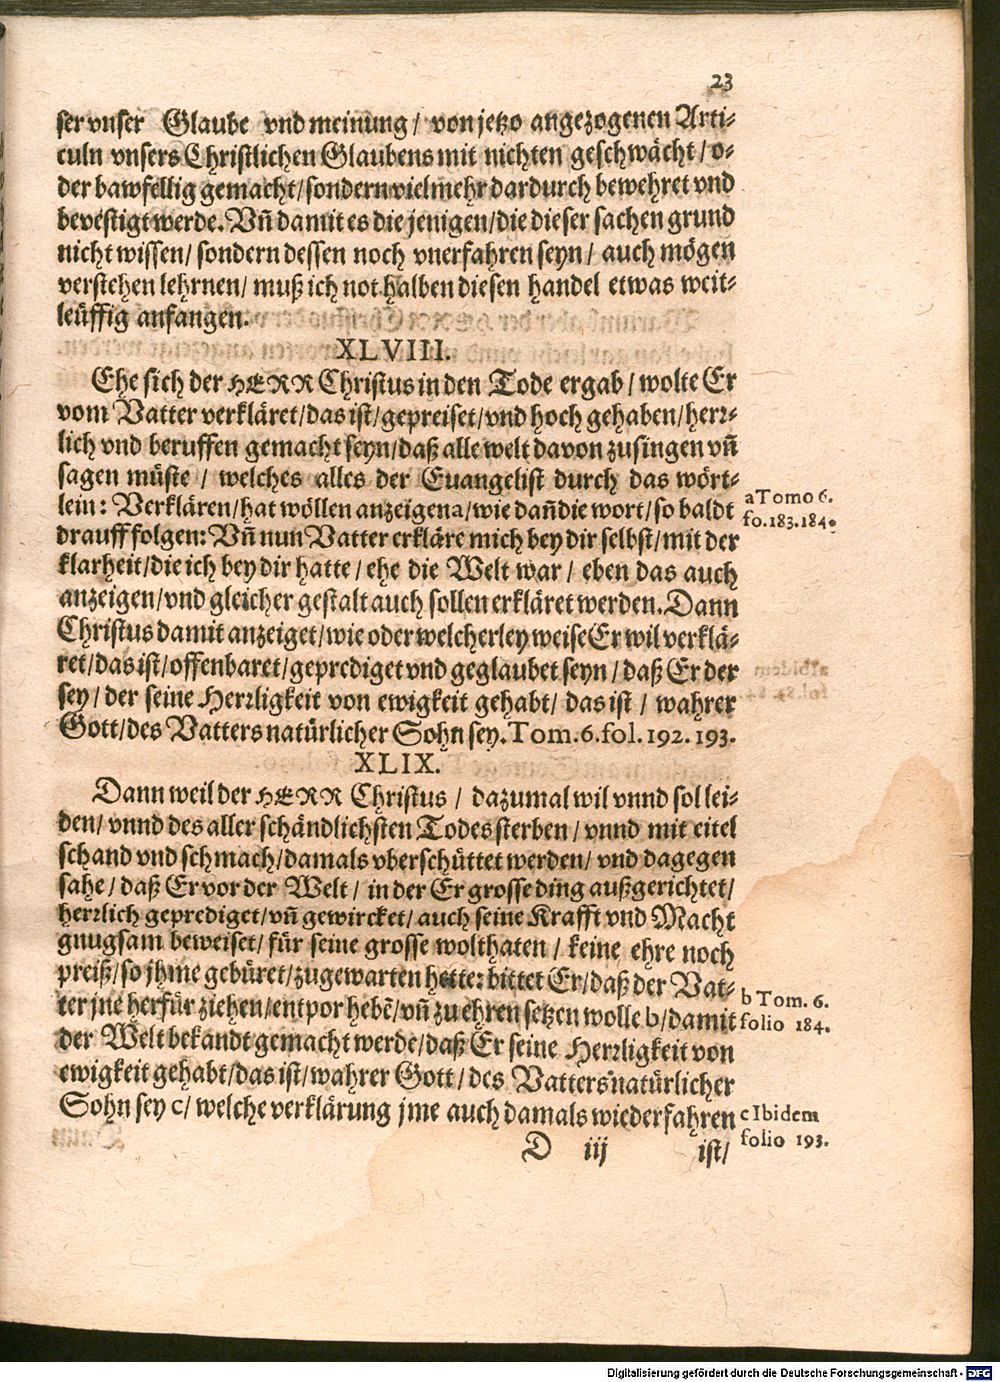 23
ser vnser Glaube vnd meinung / von jetzo angezogenen Arti-
culn vnsers Christlichen Glaubens mit nichten geschwächt / o-
der bawfellig gemacht / sondern vielmehr dardurch bewehret vnd
bevestigt werde. Vñ damit es die jenigen / die dieser sachen grund
nicht wissen / sondern dessen noch vnerfahren seyn / auch mögen
verstehen lehrnen / muß ich not halben diesen handel etwas weit-
leüffig anfangen.
XLVIII.
Ehe sich der HERR Christus in den Tode ergab / wolte Er
vom Vatter verkläret / das ist / gepreiset / vnd hoch gehaben / herr-
lich vnd beruffen gemacht seyn / daß alle welt davon zusingen vñ
sagen müste / welches alles der Euangelist durch das wört-
lein: Verklären / hat wöllen anzeigen a / wie dañ die wort / so baldt
drauff folgen: Vñ nun Vatter erkläre mich bey dir selbst / mit der
klarheit / die ich bey dir hatte / ehe die Welt war / eben das auch
anzeigen / vnd gleicher gestalt auch sollen erkläret werden. Dann
Christus damit anzeiget / wie oder welcherley weise Er wil verklä-
ret / das ist / offenbaret / geprediget vnd geglaubet seyn / daß Er der
sey / der seine Herrligkeit von ewigkeit gehabt / das ist / wahrer
Gott / des Vatters natürlicher Sohn sey. Tom. 6. fol. 192. 193.
a Tomo 6.
fo. 183. 184.
XLIX.
Dann weil der HERR Christus / dazumal wil vnnd sol lei-
den / vnnd des aller schändlichsten Todes sterben / vnnd mit eitel
schand vnd schmach / damals vberschüttet werden / vnd dagegen
sahe / daß Er vor der Welt / in der Er grosse ding außgerichtet /
herrlich geprediget / vñ gewircket / auch seine Krafft vnd Macht
gnugsam beweiset / für seine grosse wolthaten / keine ehre noch
preiß / so jhme gebüret / zugewarten hette: bittet Er / daß der Vat-
ter jne herfür ziehen / entpor hebẽ / vñ zu ehren setzen wolle b / damit
der Welt bekandt gemacht werde / daß Er seine Herrligkeit von
ewigkeit gehabt / das ist / wahrer Gott / des Vatters natürlicher
Sohn sey c / welche verklärung jme auch damals wiederfahren
b Tom. 6.
folio 184.
c Ibidem
folio 193.
D iij ist /
Digitalisierung gefördert durch die Deutsche Forschungsgemeinschaft - DFG